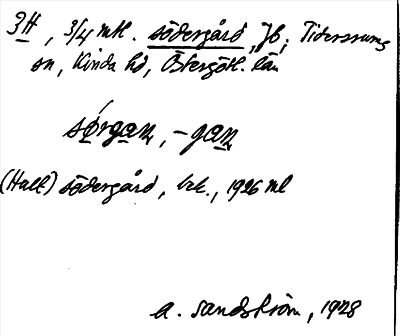 3H, 3/4 mtl. södergård, Jb; Tidersrums
sn, Kinda hd, Östergötl. län
sørgaɳ, -gaɳ
(Hall) södergård, bk., 1926 ml
A. Sandström, 1928